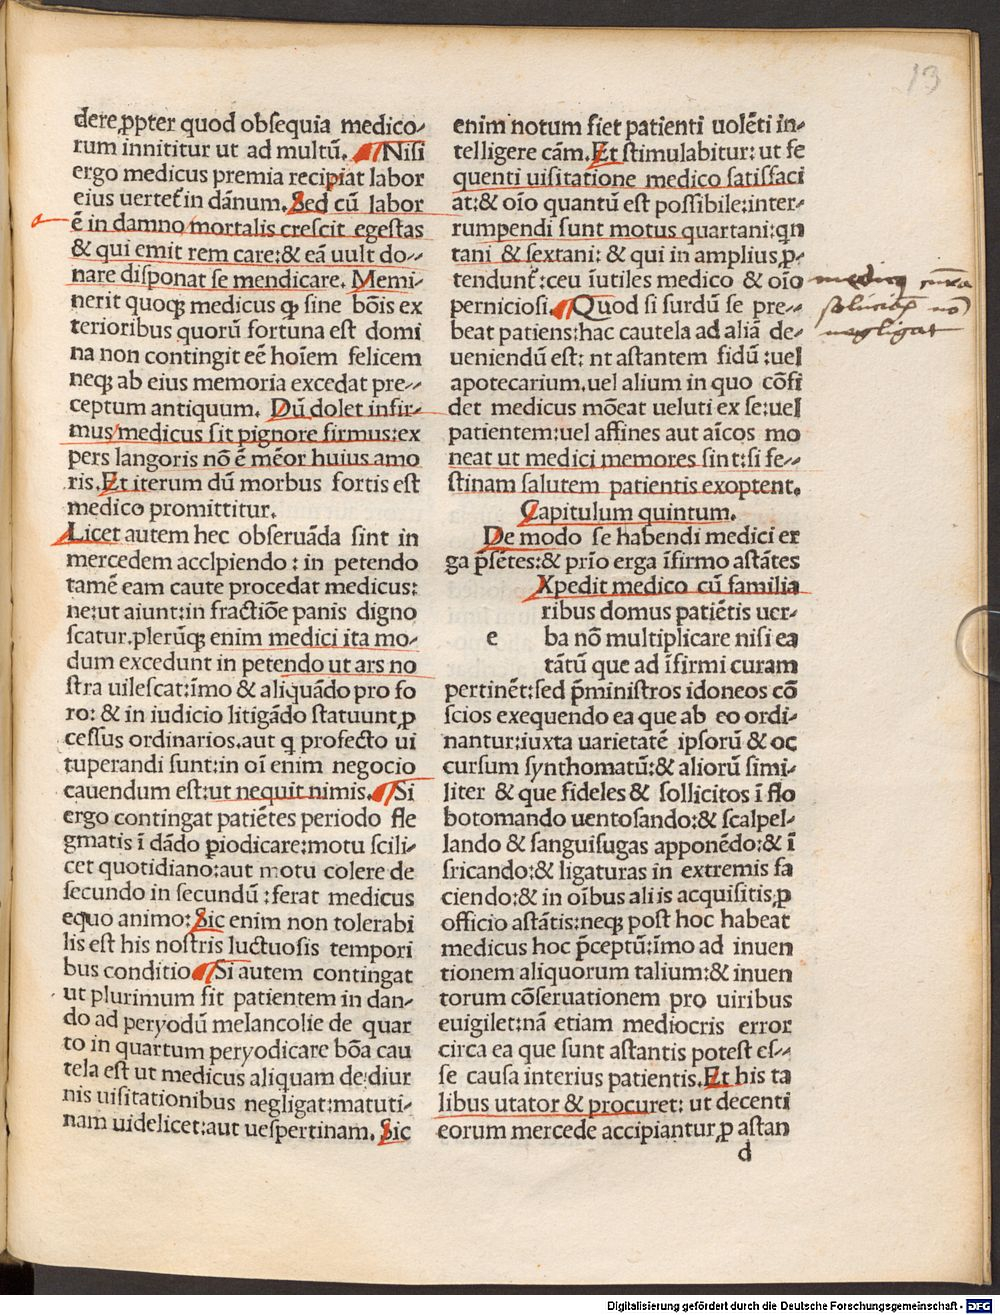 13
dere,ꝓpter quod obſequia medico-
rum innititur ut ad multū. Niſi
ergo medicus premia recipiat labor
eius uertet̃ in dānum. Sed cū labor
ē in damno mortalis creſcit egeſtas
& qui emit rem care:& eā uult do-
nare diſponat ſe mendicare. Memi-
nerit quoqꝫ medicus ꝙ ſine bōis ex
terioribus quorū fortuna eſt domi
na non contingit eē hoīem felicem
neqꝫ ab eius memoria excedat pre-
ceptum antiquum. Dū dolet infir-
mus medicus ſit pignore firmus:ex
pers langoris nō ē mēor huius amo
ris. Et iterum dū morbus fortis eſt
medico promittitur.
Licet autem hec obſeruāda ſint in
mercedem acclpiendo : in petendo
tamē eam caute procedat medicus:
ne:ut aiunt:in fractiōe panis digno
ſcatur.plerūqꝫ enim medici ita mo-
dum excedunt in petendo ut ars no
ſtra uileſcat:īmo & aliquādo pro fo
ro: & in iudicio litigādo ſtatuunt,ꝓ
ceſſus ordinarios.aut q profecto ui
tuperandi ſunt:in oī enim negocio
cauendum eſt:ut nequit nimis. Si
ergo contingat patiētes periodo fle
gmatis ī dādo ꝑiodicare:motu ſcili-
cet quotidiano:aut motu colere de
ſecundo in ſecundū :ferat medicus
equo animo: Sic enim non tolerabi
lis eſt his noſtris luctuoſis tempori
bus conditio. Si autem contingat
ut plurimum ſit patientem in dan-
do ad peryodū melancolie de quar
to in quartum peryodicare bōa cau
tela eſt ut medicus aliquam de diur
nis uiſitationibus negligat:matuti-
nam uidelicet:aut ueſpertinam. Sic
enim notum fiet patienti uolēti in-
telligere cām. Et ſtimulabitur: ut fe
quenti uiſitatione medico ſatiſfaci
at:& oīo quantū eſt poſſibile:inter-
rumpendi ſunt motus quartani:qn
tani & ſextani: & qui in amplius,ꝓ-
tendunt̃:ceu īutiles medico & oīo
pernicioſi. Quod ſi ſurdū ſe pre-
beat patiens:hac cautela ad aliā de-
ueniendū eſt: nt aſtantem fidū :uel
apotecarium.uel alium in quo cōfi
det medicus mōeat ueluti ex ſe:uel
patientem:uel affines aut aīcos mo
neat ut medici memores ſint:ſi fe-
ſtinam ſalutem patientis exoptent.
Capitulum quintum.
De modo ſe habendi medici er
ga p̄ſētes:& prīo erga īfirmo aſtātes
Xpedit medico cū familia
ribus domus patiētis uer-
e ba nō multiplicare niſi ea
tātū que ad īfirmi curam
pertinēt:ſed p̄miniſtros idoneos cō
ſcios exequendo ea que ab eo ordi-
nantur:iuxta uarietatē ipſorū & oc
curſum ſynthomatū:& aliorū ſimi-
liter & que fideles & ſollicitos ī flo
botomando uentoſando:& ſcalpel-
lando & ſanguiſugas apponēdo:& ī
fricando:& ligaturas in extremis fa
ciendo:& in oībus aliis acquiſitis,ꝓ
officio aſtātis:neqꝫ poſt hoc habeat
medicus hoc p̄ceptū:īmo ad inuen
tionem aliquorum talium:& inuen
torum cōſeruationem pro uiribus
euigilet:nā etiam mediocris error
circa ea que ſunt aſtantis poteſt eſ-
ſe cauſa interius patientis. Et his ta
libus utator & procuret: ut decenti
eorum mercede accipiantur,ꝓ aſtan
d
negligat
Digitalisierung gefördert durch die Deutsche Forschungsgemeinschaft - DFG